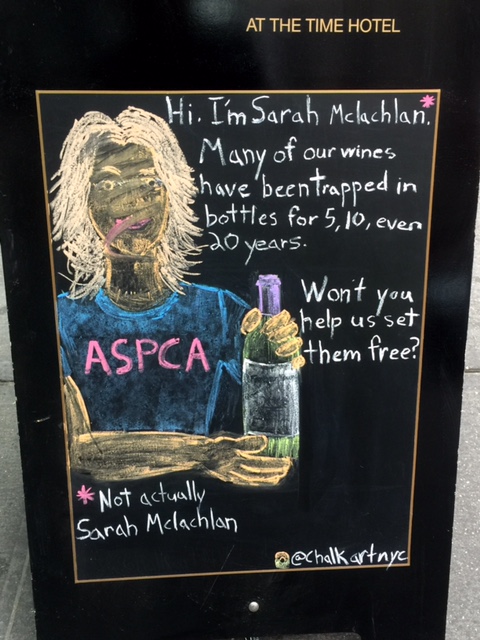 AT THE TIME HOTEL
Hi. I'm Sarah Mclachlan.*
Many of our wines
have been trapped in
bottles for 5, 10, even
20 years.
Won't you
help us set
them free?
ASPCA
*Not actually
Sarah Mclachlan
@chalkartnyc